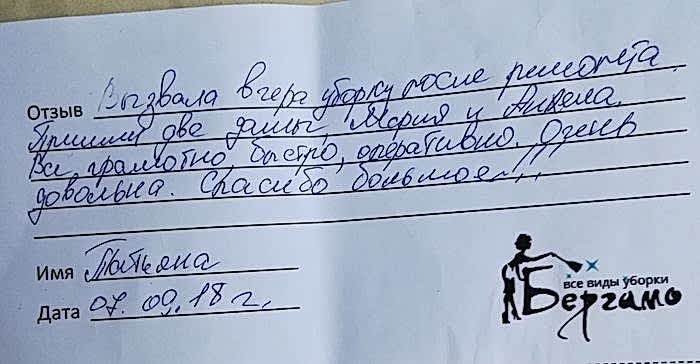 Отзыв Вызвала вчера уборку после ремонта.
Пришли две дамы, Мария и Анжела.
Всё грамотно, быстро, оперативно. Очень
довольна. Спасибо большое!!!
Имя Татьяна
Дата 07.09.18 г.
все виды уборки
Бергамо